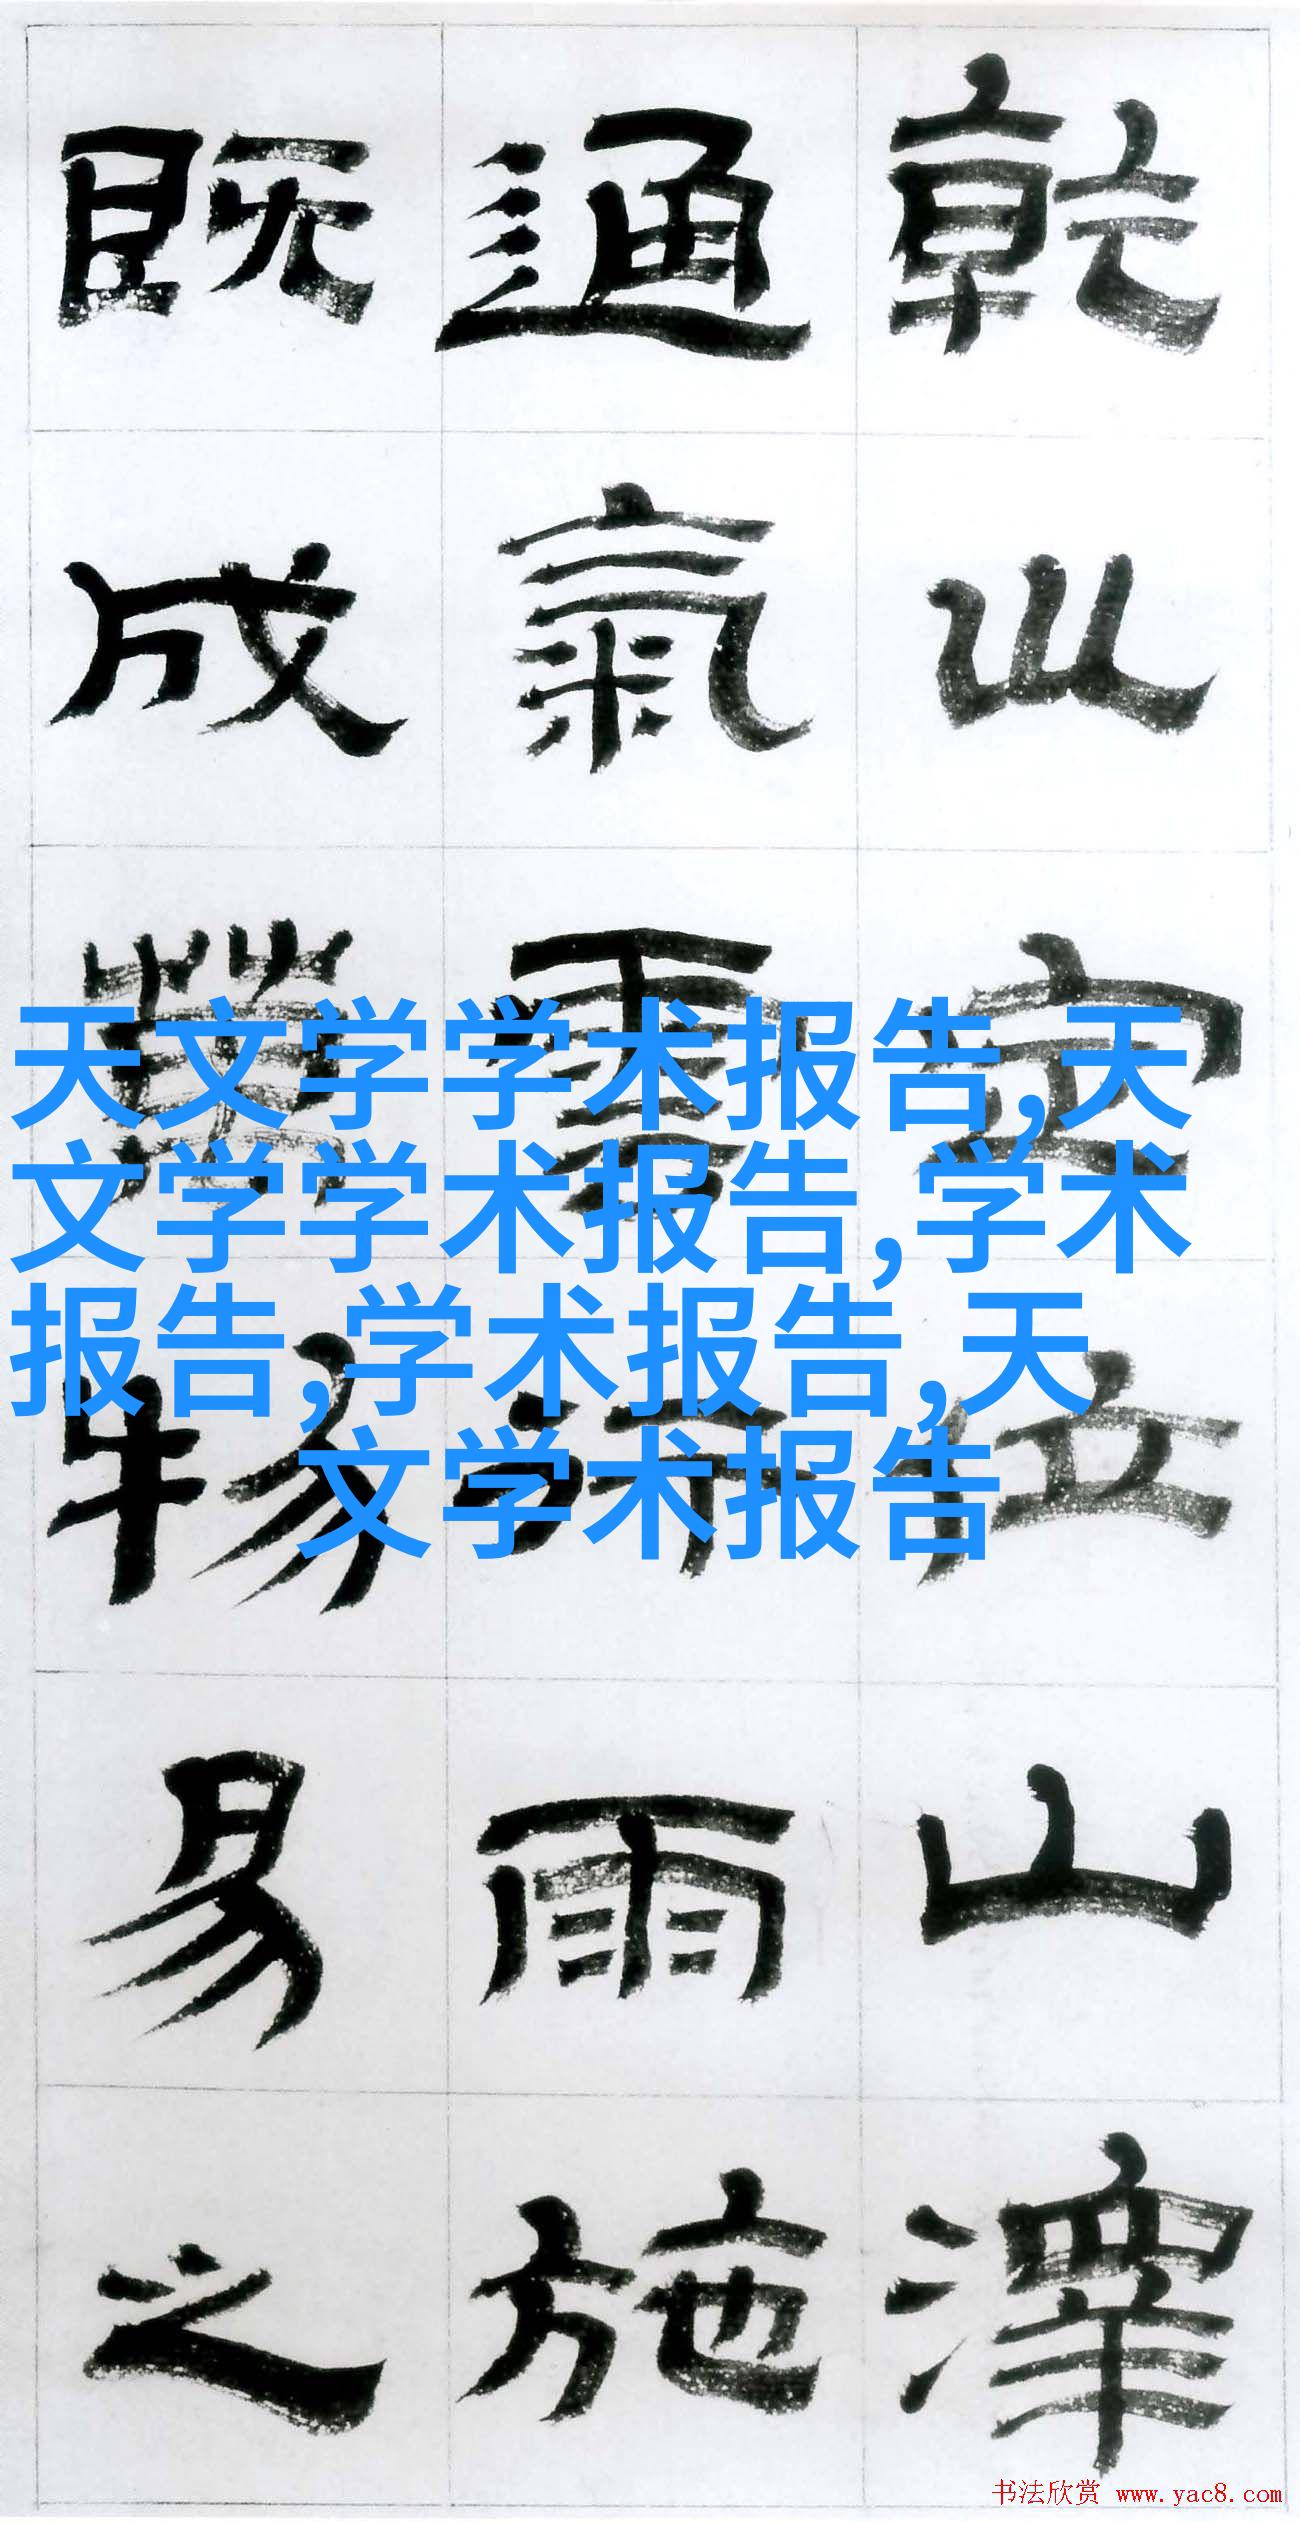 乾坤定位山澤
通氣雲行雨施
既成萬物易之
天文学学术报告,天
文学学术报告,学术
报告,学术报告,天
文学术报告
书法欣赏 www.yac8.com